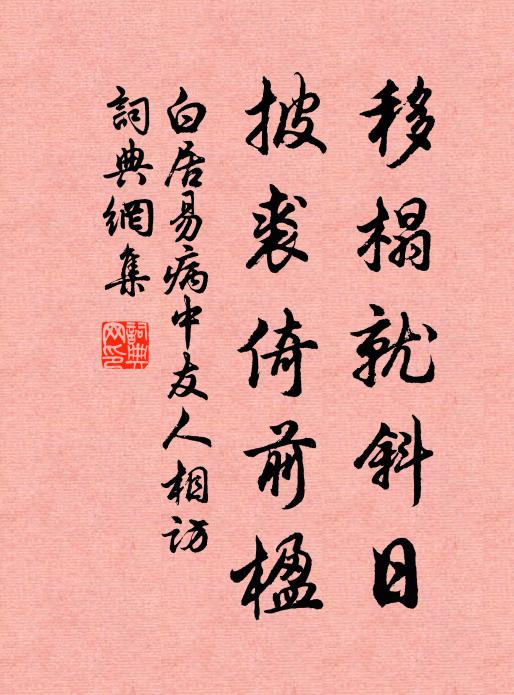 移榻就斜日
披裘倚前楹
白居易病中友人相访
詞典網集
詞典网印